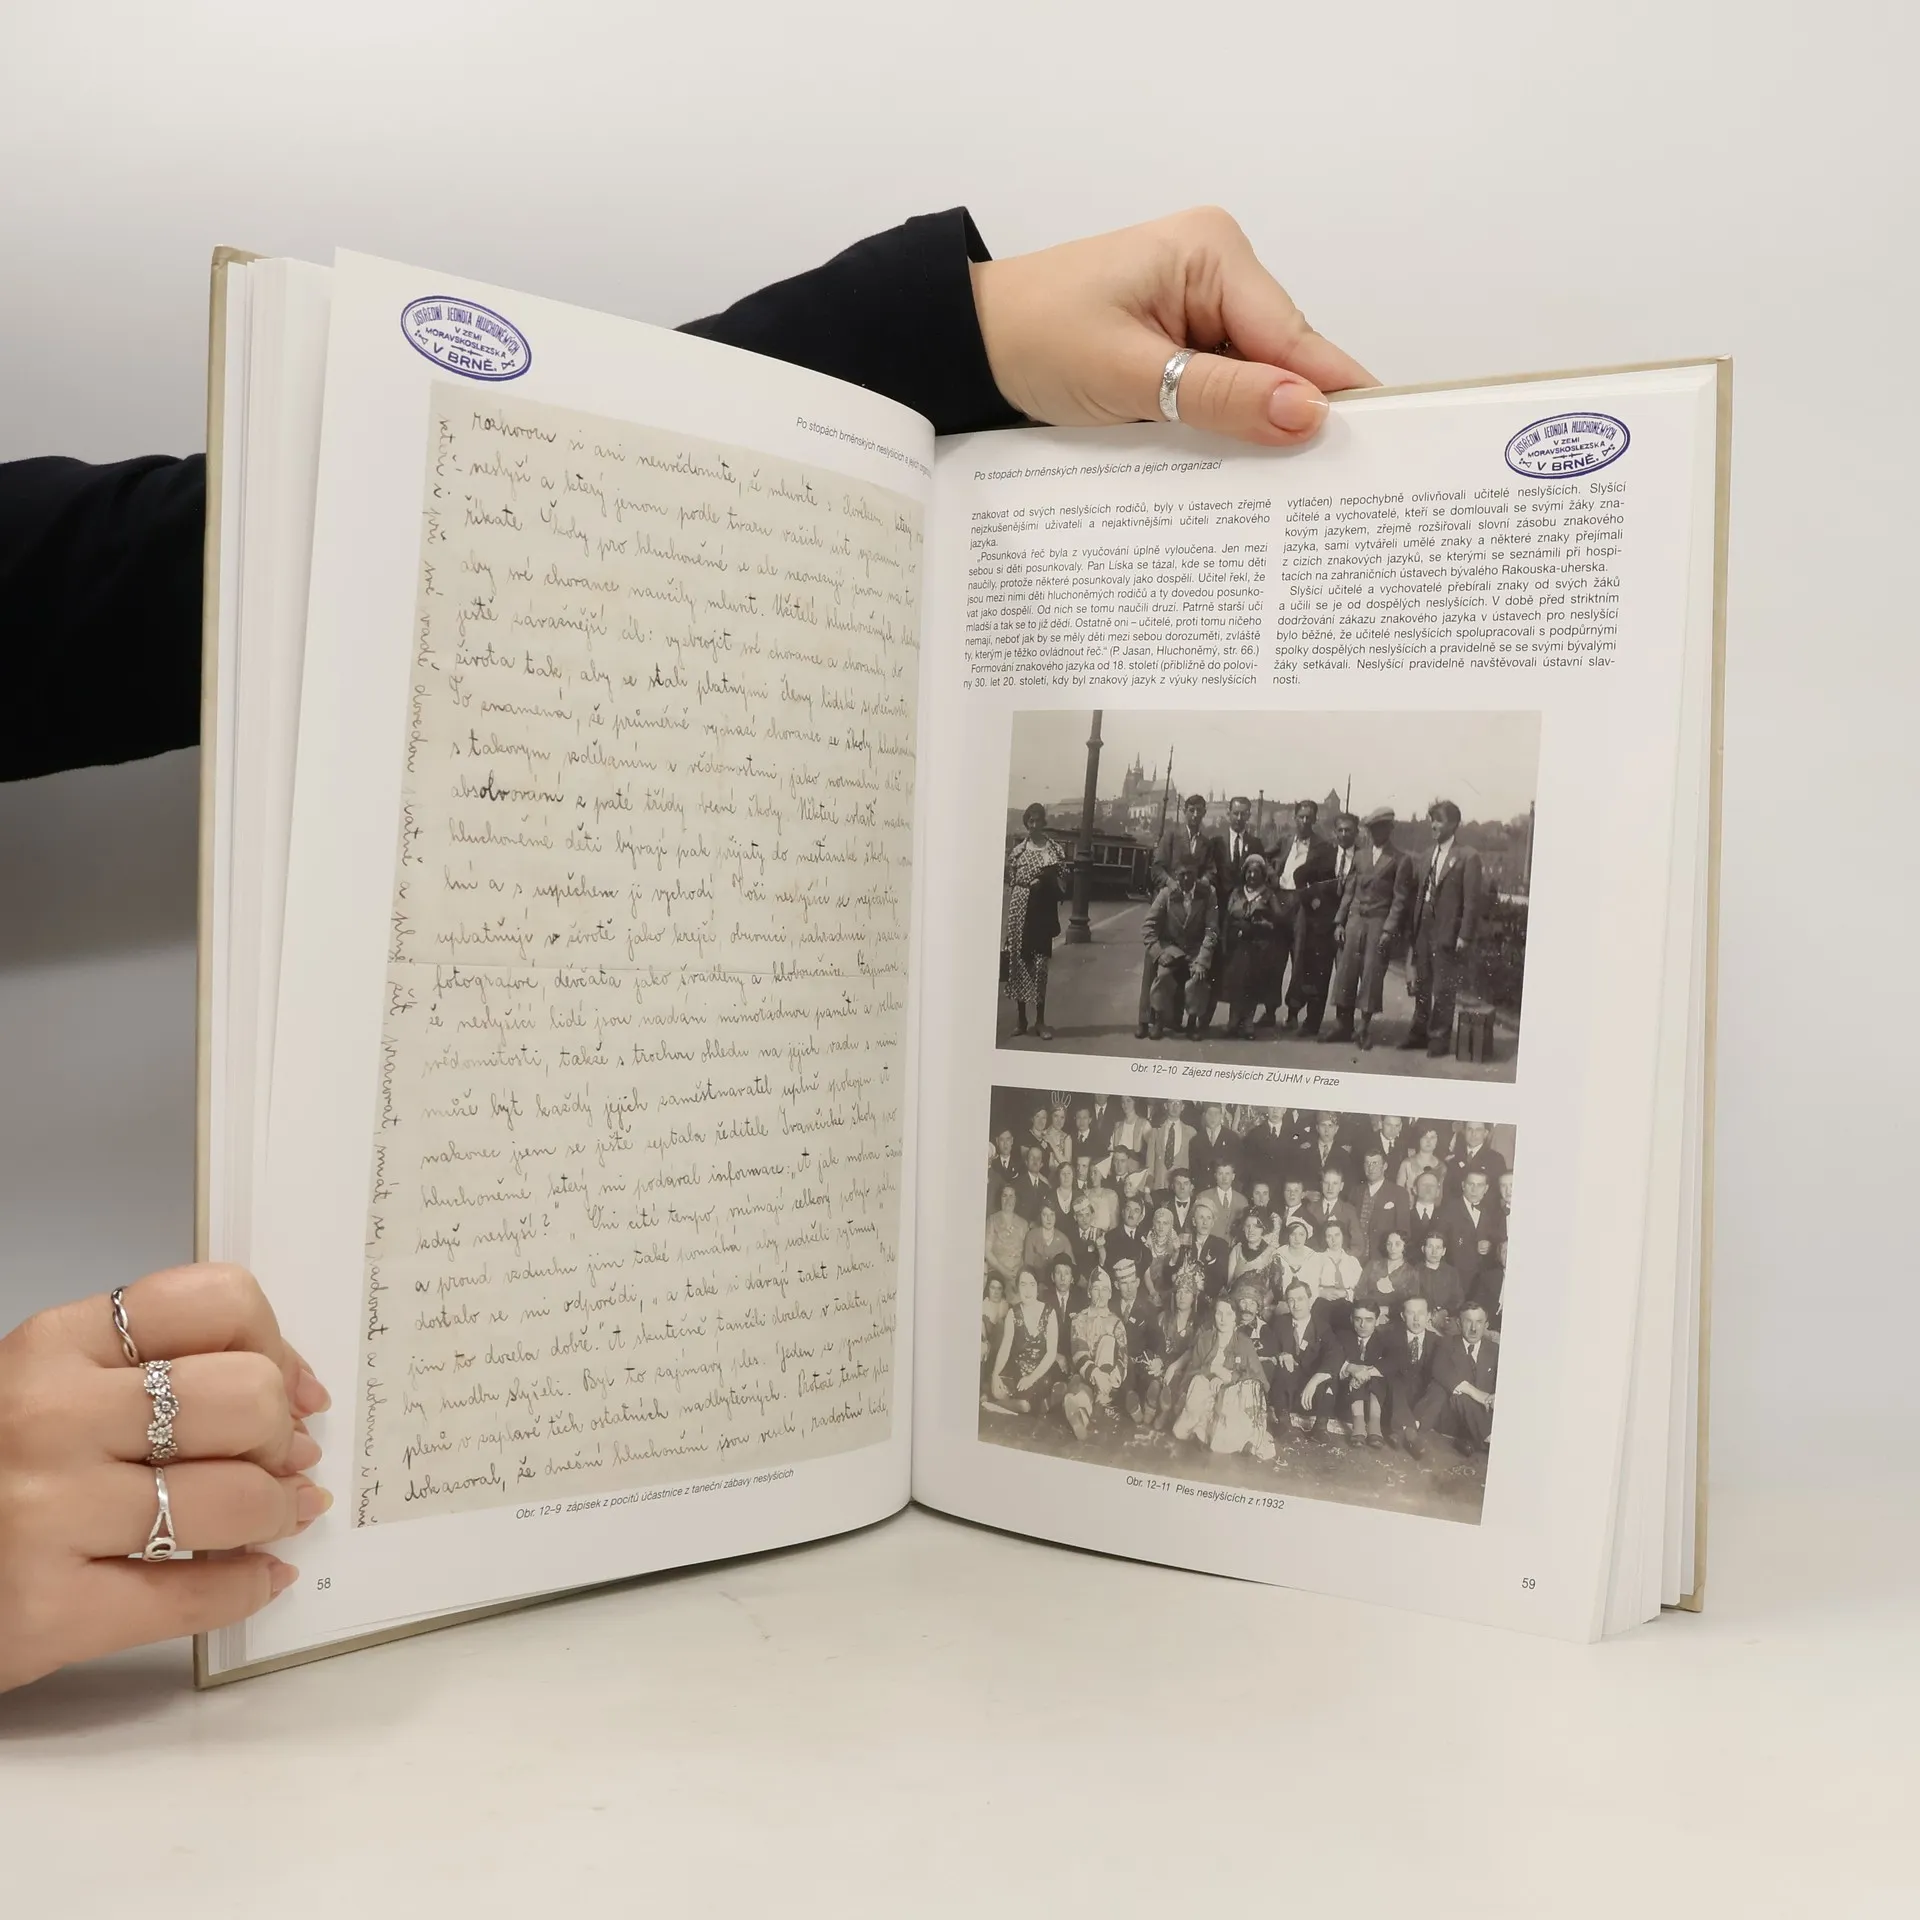 ÚSTŘEDNÍ JEDNOTA HLUCHONĚMÝCH
V ZEMI
MORAVSKOSLEZSKÁ
V BRNĚ.
Po stopách brněnských neslyšících a jejich
rozhovoru si ani neuvědomíte, že mluvíte s člověkem, který
neslyší a který jenom podle tvaru vašich úst vyrozumí, co
říkáte. Školy pro hluchoněmé se ale neomezují jenom na to,
aby své chovance naučily mluvit. Učitelé hluchoněmých
ještě závažnější cíl: vyzbrojit své chovance a chovanky do
života tak, aby se stali platnými členy lidské společnosti.
To znamená, že průměrně vychází chovanec ze školy
s takovým vzděláním a vědomostmi, jako normální dítě po
absolvování z páté třídy obecné školy. Některé zvlášť
hluchoněmé děti bývají pak přijaty do mešťanské školy
lní a s úspěchem ji vychodí. Hoši neslyšící se nejčastěji
uplatňují v životě jako krejčí, obuvníci, zahradníci,
fotografové, děvčata jako švadleny a kloboučnice. Zajímavé
že neslyšící lidé jsou nadáni mimořádnou pamětí a velkou
svědomitostí, takže s trochou ohledu na jejich vadu s nimi
může být každý jejich zaměstnavatel úplně spokojen. A
nakonec jsem se ještě zeptala ředitele Ivančické školy pro
hluchoněmé, který mi podával informace: „A jak mohou tančit
když neslyší?" „Oni cítí tempo, vnímají celkový pohyb sálu
a proud vzduchu jim také pomáhá, aby udrželi rytmus,"
dostalo se mi odpovědi, „a také si dávají takt rukou. Jde
jim to docela dobře." A skutečně tančili docela v taktu, jako
by hudbu slyšeli. Byl to zajímavý ples. Jeden z nejsympatičtějších
plesů v záplavě těch ostatních nadbytečných. Protože tento ples
dokazoval, že dnešní hluchoněmí jsou veselí, radostní lidé,
kteří i při své vadě dovedou platně a plně žít, pracovat, smát se, radovat a dokonce i tančit
Obr. 12–9 zápisek z pocitů účastnice z taneční zábavy neslyšících
58
Po stopách brněnských neslyšících a jejich organizací
ÚSTŘEDNÍ JEDNOTA HLUCHONĚMÝCH
V ZEMI
MORAVSKOSLEZSKÁ
V BRNĚ.
znakovat od svých neslyšících rodičů, byly v ústavech zřejmě
nejzkušenějšími uživateli a nejaktivnějšími učiteli znakového
jazyka.
„Posunková řeč byla z vyučování úplně vyloučena. Jen mezi
sebou si děti posunkovaly. Pan Líska se tázal, kde se tomu děti
naučily, protože některé posunkovaly jako dospělí. Učitel řekl, že
jsou mezi nimi děti hluchoněmých rodičů a ty dovedou posunko-
vat jako dospělí. Od nich se tomu naučili druzí. Patrně starší učí
mladší a tak se to již dědí. Ostatně oni – učitelé, proti tomu ničeho
nemají, neboť jak by se měly děti mezi sebou dorozuměti, zvláště
ty, kterým je těžko ovládnout řeč." (P. Jasan, Hluchoněmý, str. 66.)
Formování znakového jazyka od 18. století (přibližně do polovi-
ny 30. let 20. století, kdy byl znakový jazyk z výuky neslyšících
vytlačen) nepochybně ovlivňovali učitelé neslyšících. Slyšící
učitelé a vychovatelé, kteří se domlouvali se svými žáky zna-
kovým jazykem, zřejmě rozšiřovali slovní zásobu znakového
jazyka, sami vytvářeli umělé znaky a některé znaky přejímali
z cizích znakových jazyků, se kterými se seznámili při hospi-
tacích na zahraničních ústavech bývalého Rakouska-uherska.
Slyšící učitelé a vychovatelé přebírali znaky od svých žáků
a učili se je od dospělých neslyšících. V době před striktním
dodržování zákazu znakového jazyka v ústavech pro neslyšící
bylo běžné, že učitelé neslyšících spolupracovali s podpůrnými
spolky dospělých neslyšících a pravidelně se se svými bývalými
žáky setkávali. Neslyšící pravidelně navštěvovali ústavní slav-
nosti.
Obr. 12–10 Zájezd neslyšících ZÚJHM v Praze
Obr. 12–11 Ples neslyšících z r.1932
59